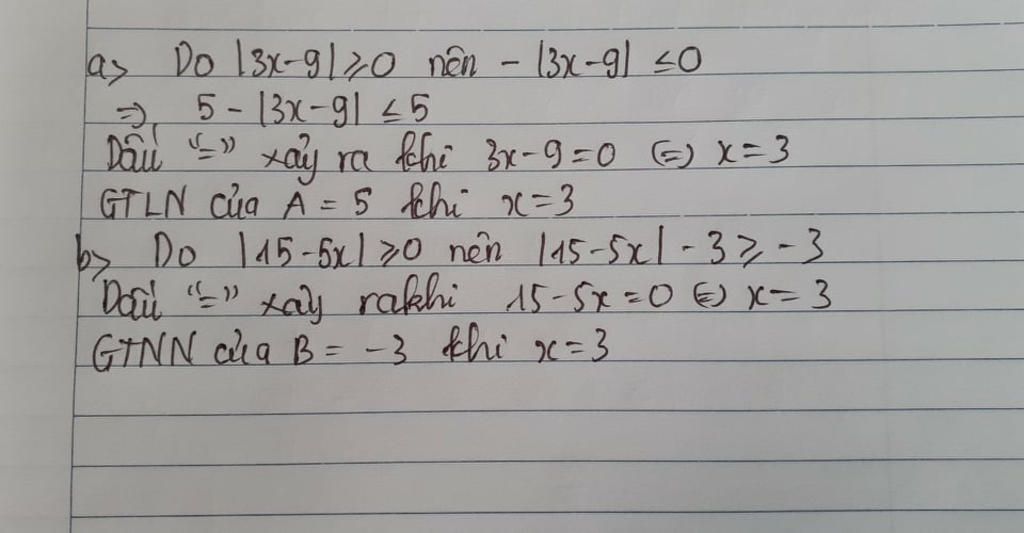 a> Do |3x-9| ≥ 0 nên - |3x-9| ≤ 0
=> 5 - |3x-9| ≤ 5
Dấu "=" xảy ra khi 3x-9=0 <=> x=3
GTLN của A = 5 khi x=3
b> Do |15-5x| ≥ 0 nên |15-5x| - 3 ≥ -3
Dấu "=" xảy ra khi 15-5x=0 <=> x=3
GTNN của B = -3 khi x=3